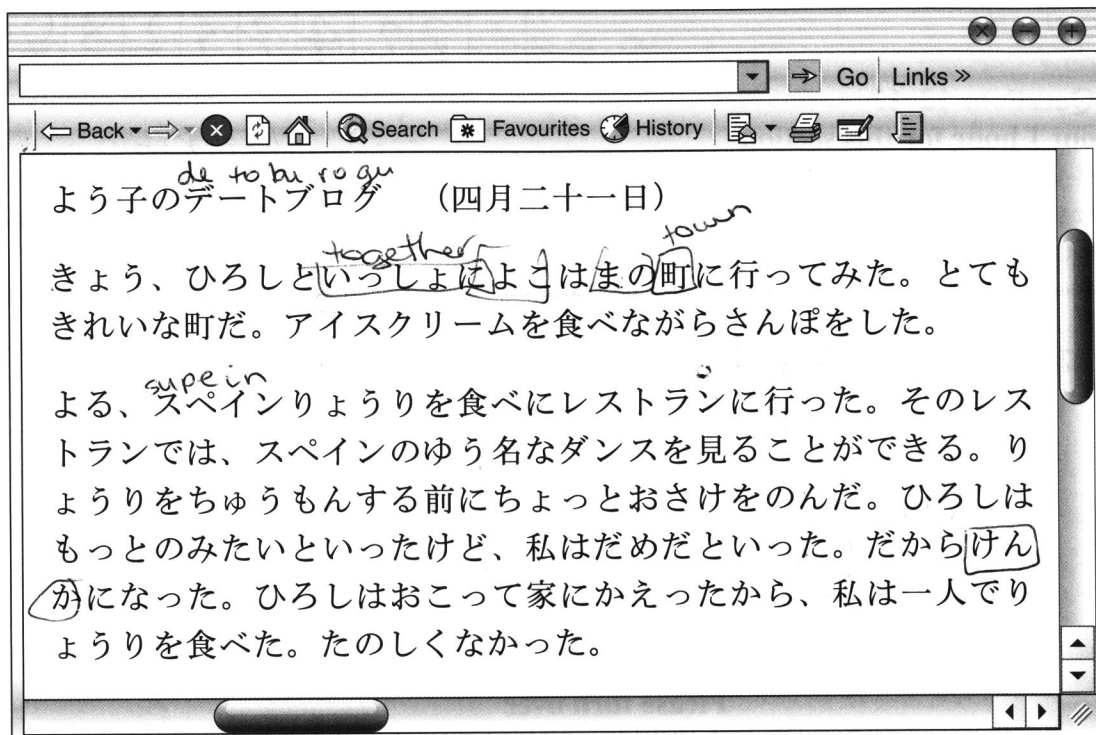 Go Links »
Back Search Favourites History
de to bu ro gu
よう子のデートブログ (四月二十一日)
together town
きょう、ひろしといっしょによこはまの町に行ってみた。とても
きれいな町だ。アイスクリームを食べながらさんぽをした。
supein
よる、スペインりょうりを食べにレストランに行った。そのレス
トランでは、スペインのゆう名なダンスを見ることができる。り
ょうりをちゅうもんする前にちょっとおさけをのんだ。ひろしは
もっとのみたいといったけど、私はだめだといった。だからけん
かになった。ひろしはおこって家にかえったから、私は一人でり
ょうりを食べた。たのしくなかった。